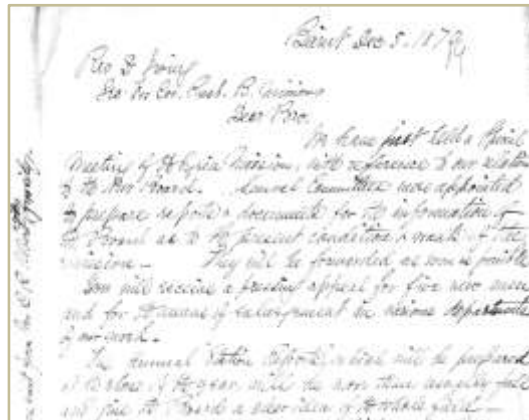 Beirut Dec 5. 187
Rev D Irving
Sec for Cor. Presb. B. Missions
Dear Bro.
We have just held a special
Meeting of the Syria Mission, with reference to our relation
to the New Board. Several Committees were appointed
to prepare reports & documents for the information of
the Board as to the present condition & wants of the
mission. They will be forwarded as soon as possible
You will receive a pressing appeal for five new men
and for the means of enlargement in various departments
of our work.
The Annual Station Reports, which will be prepared
at the close of the year, will be more than usually full
and give the Board a clear idea of the whole field